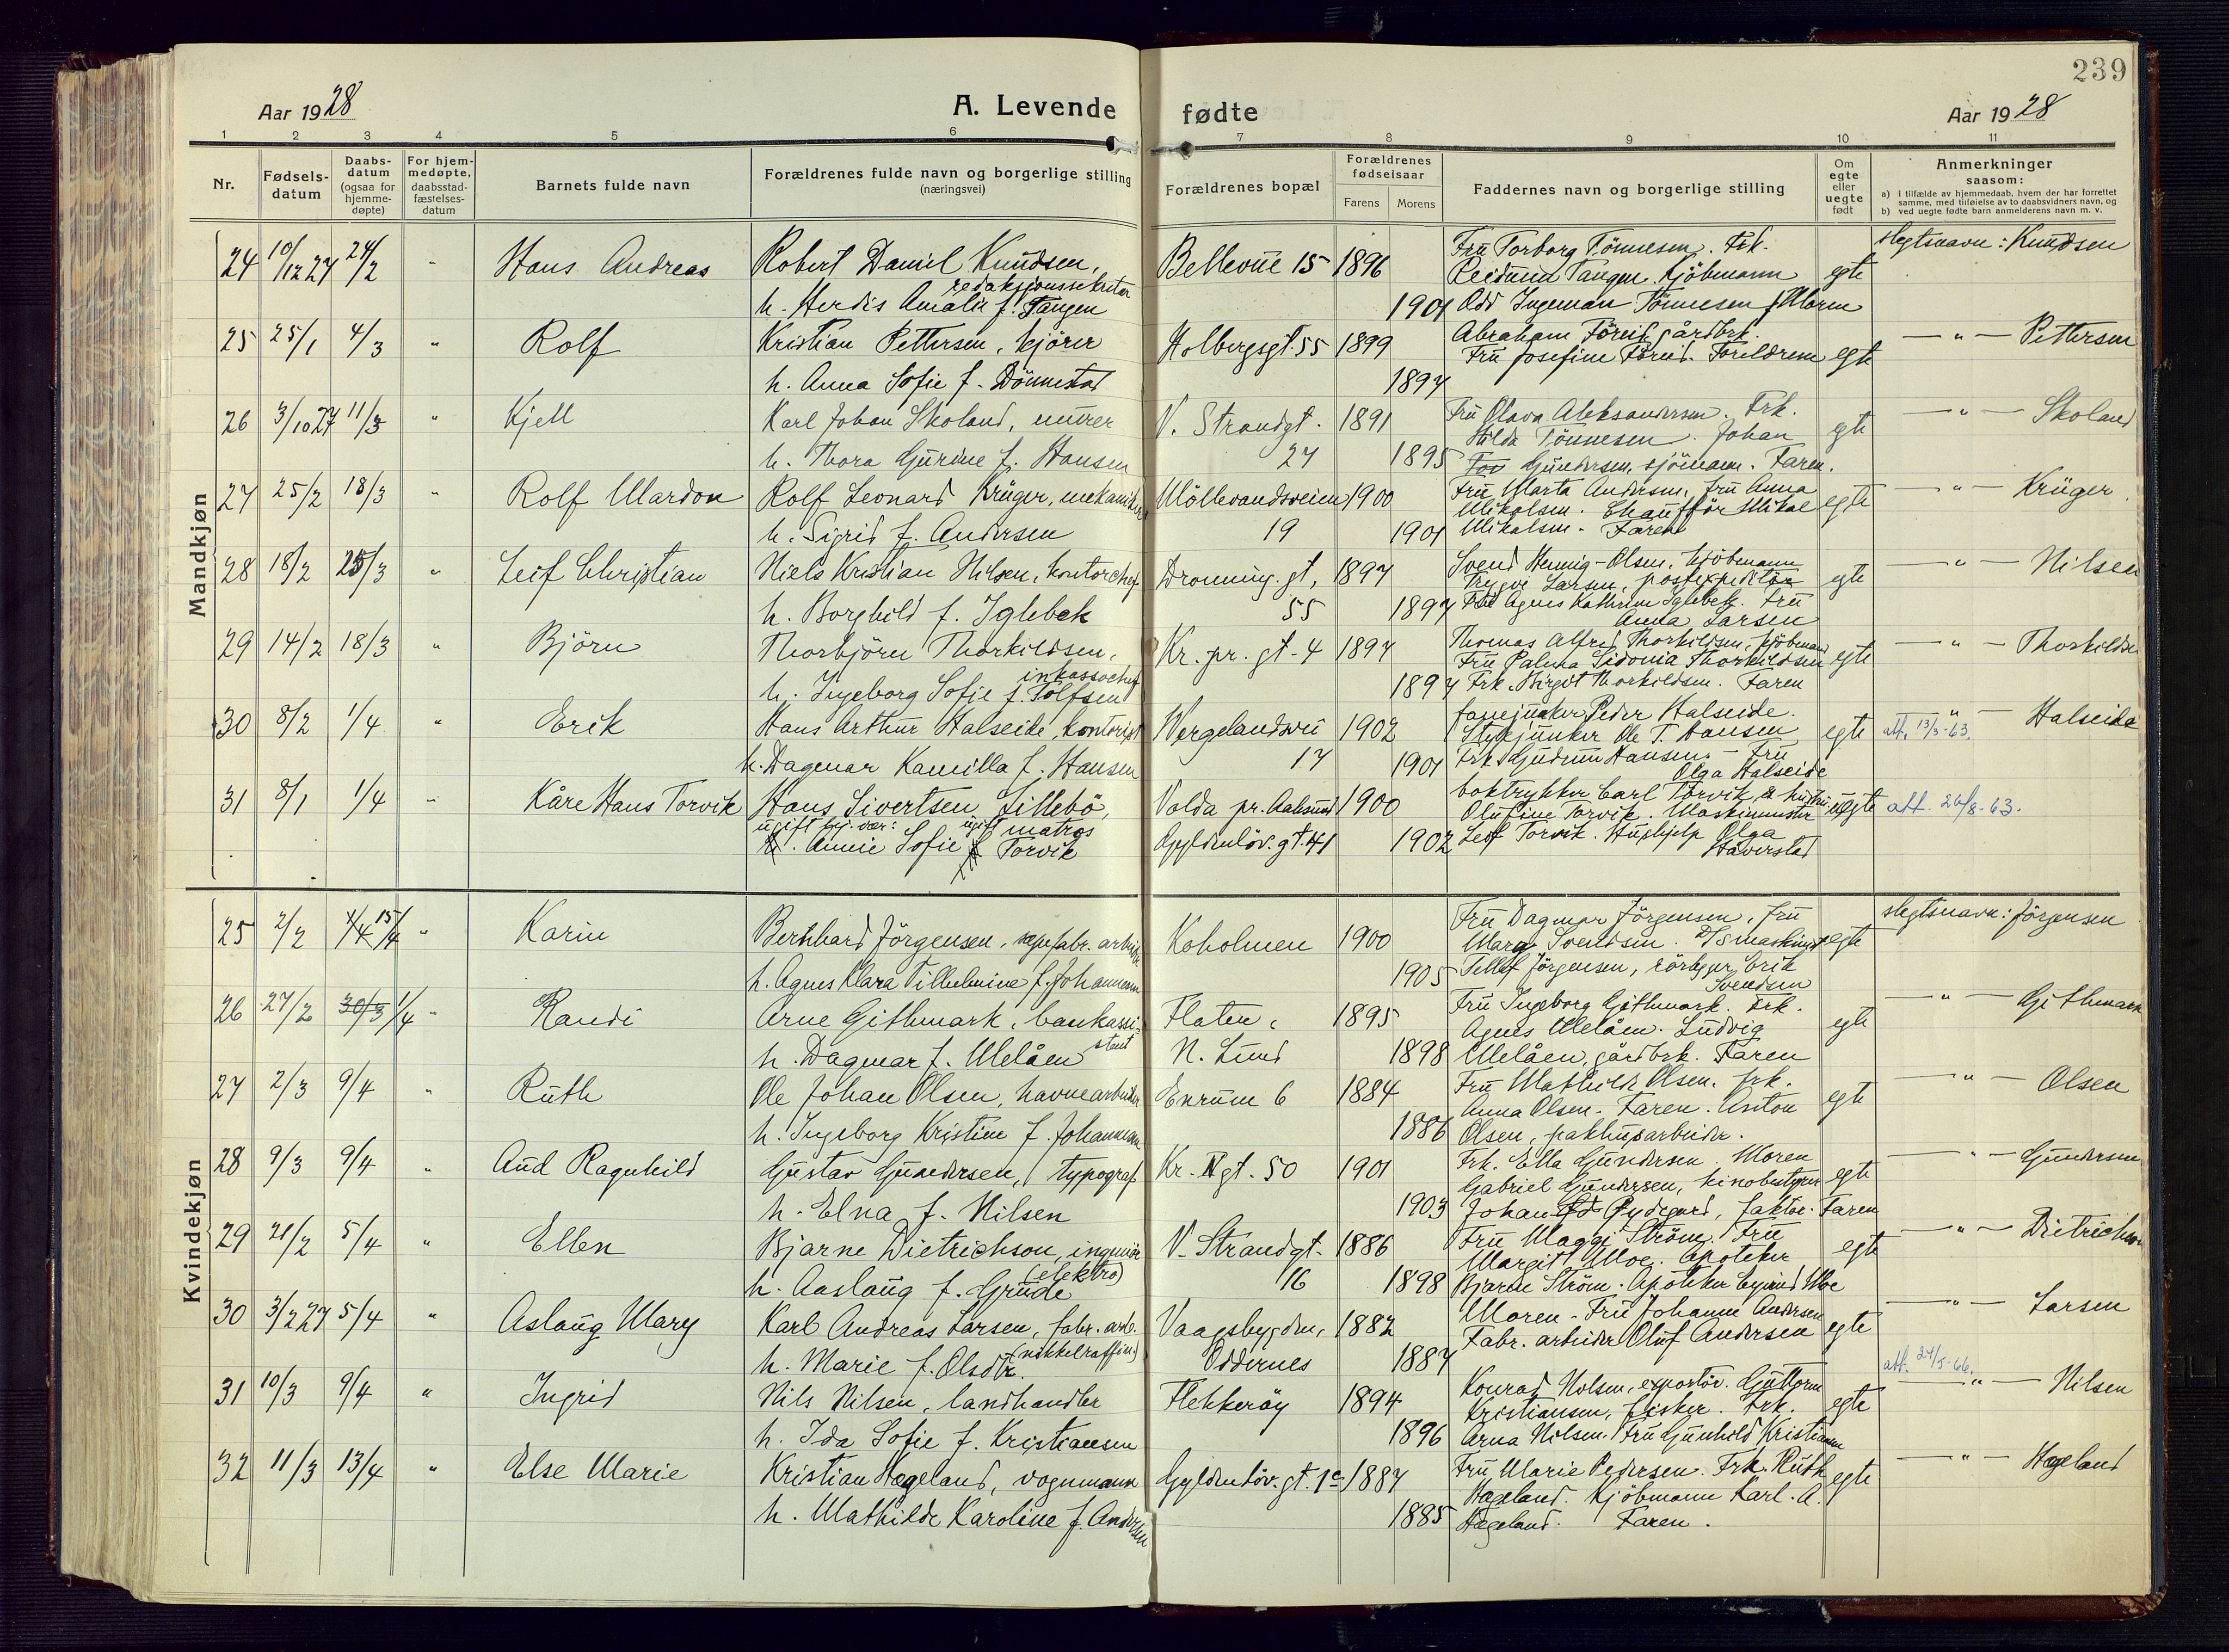 239
Aar 1928
A. Levende
fødte
Aar 1928
1 2 3 4 5 6 7 8 9 10 11
Nr.
Fødsels-
datum
Daabs-
datum
(ogsaa for
hjemme-
døpte)
For hjem-
medøpte,
daabsstad-
fæstelses-
datum
Barnets fulde navn
Forældrenes fulde navn og borgerlige stilling
(næringsvei)
Forældrenes bopæl
Forældrenes
fødselsaar
Farens Morens
Faddernes navn og borgerlige stilling
Om
egte
eller
uegte
født
Anmerkninger
saasom:
a) i tilfælde av hjemmedaab, hvem der har forrettet
samme, med tilføielse av to daabsvidners navn, og
b) ved uegte fødte barn anmelderens navn m. v.
Mandkjøn
24 10/12 27 24/2 - Hans Andreas
Robert Daniel Knudsen,
redaksjonssekretær
h. Herdis Amalie f. Tangen
Bellevue 15 1896
1901
Fru Torborg Tönnesen. Frk.
Reidunn Tangen. Kjöbmann
Odd Ingeman Tönnesen. Moren
egte
slegtsnavn: Knudsen
25 25/1 4/3 " Rolf
Kristian Pettersen, kjörer
h. Anna Sofie f. Dönnestad
Holbergsgt. 55 1899
1897
Abraham gårdbrk.
Fru Josefine Foreldrene
egte
— " — Pettersen
26 3/10 27 11/3 " Kjell
Karl Johan Skoland, murer
h. Thora Gurine f. Hansen
V. Strandgt. 1891
27 1895
Fru Olava Aleksandersen. Frk.
Hilda Tönnesen. Johan
Tov Gundersen, sjömann. Faren.
egte
— " — Skoland
27 25/2 18/3 " Rolf Mardon
Rolf Leonard Krüger, mekaniker
h. Sigrid f. Andersen
Möllevandsveien 1900
19 1901
Fru Marta Andersen, Fru Anna
Mikalsen. Chaufför Mikal
Mikalsen. Faren
egte
— " — Krüger
28 18/2 25/3 " Leif Christian
Niels Kristian Nilsen, kontorchef
h. Borghild f. Iglebek
Dronning. gt, 1897
55 1897
Svend Hennig-Olsen, kjöbmann
Trygve Larsen, postexpeditör
Fru Agnes Kathrine Iglebek. Fru
Anna Larsen
egte
— " — Nilsen
29 14/2 18/3 " Björn
Thorbjörn Thorkildsen,
inkassochef
h. Ingeborg Sofie f. Tolfsen
Kr. pr. gt. 4 1897
1897
Thomas Alfred Thorkildsen, kjöbmand
Fru Palma Sidonia Thorkildsen
Frk. Birgit Thorkildsen. Faren
egte
— " — Thorkildsen
30 8/2 1/4 " Erik
Hans Arthur Halseide, kontorist
h. Dagmar Kamilla f. Hansen
Wergelandsvei 1902
17 1901
fanejunker Peder Halseide.
Stykjunker Ole T. Hansen
Frk. Gudrun Hansen. - Fru
Olga Halseide
egte
att. 13/3-63. " — Halseide
31 8/1 1/4 - Kåre Hans Torvik
Hans Sivertsen Lillebö,
ugift matros
ugift
h. Annie Sofie f. Torvik
Volda pr. Aalesund 1900
Gyldenlöv. gt. 41 1902
boktrykker Carl Torvik & hustru
Olufine Torvik. Maskinmester
Leif Torvik. Hushjelp Olga
Håverstad
uegte
att. 26/8-63.
Kvindekjøn
25 2/2 4/4 15/4 " Karin
Bernhard Jörgensen, sepefabr. arbeider
h. Agnes Klara Vilhelmine f. Johannesen
Koholmen 1900
1905
Fru Dagmar Jörgensen, Fru
Mary Svendsen. D/S maskinist
Tellef Jörgensen, rörlegger Erik
Svendsen
egte
slegtsnavn: Jörgensen
26 27/2 30/3 1/4 " Randi
Arne Githmark, bankassi-
stent
h. Dagmar f. Ulelåen
Flaten, 1895
N. Lund 1898
Fru Ingeborg Githmark. Frk.
Agnes Ulelåen. Ludvig
Ulelåen, gårdbrk. Faren
egte
— " — Githmark
27 2/3 9/4 " Ruth
Ole Johan Olsen, havnearbeider
h. Ingeborg Kristine f. Johannesen
Enrum 6 1884
1886
Fru Mathilde Olsen. frk.
Anna Olsen. Faren. Anton
Olsen, pakhusarbeider.
egte
— " — Olsen
28 9/3 9/4 " Aud Ragnhild
Gustav Gundersen, typograf
h. Elna f. Nilsen
Kr. IV gt. 50 1901
1903
Frk. Ella Gundersen. Moren
Gabriel Gundersen, kinobestyrer
Johan Fr Rydegård, faktor. Faren
egte
— " — Gundersen
29 21/2 5/4 " Ellen
Bjarne Dietrichson, ingeniör
(elektro)
h. Aaslaug f. Grude
V. Strandgt. 1886
16 1898
Fru Maggi Ström. Fru
Margit Moe. Apoteker
Bjarne Ström. Apoteker Eyvind Moe
egte
— " — Dietrichson
30 3/2 27 5/4 " Aslaug Mary
Karl Andreas Larsen, fabr. arb.
(nikkelraffin.)
h. Marie f. Olsdtr.
Vaagsbygden, 1882
Oddernes 1887
Moren - Fru Johanne Andersen
Fabr. arbeider Oluf Andersen
egte
— " — Larsen
31 10/3 9/4 " Ingrid
Nils Nilsen, landhandler
h. Ida Sofie f. Kristiansen
Flekkeröy 1894
1896
Konrad Nilsen, exportör. Guttorm
Kristiansen, fisker. Frk.
Arna Nilsen. Fru Gunhild Kristiansen
egte
att. 24/5-66.
— " — Nilsen
32 11/3 13/4 " Else Marie
Kristian Hageland, vognmann
h. Mathilde Karoline f. Andersen
Gyldenlöv. gt. 1a 1887
1885
Fru Marie Pedersen. Frk. Ruth
Hageland. Kjöbmann Karl. A.
Hageland. Faren.
egte
— " — Hageland